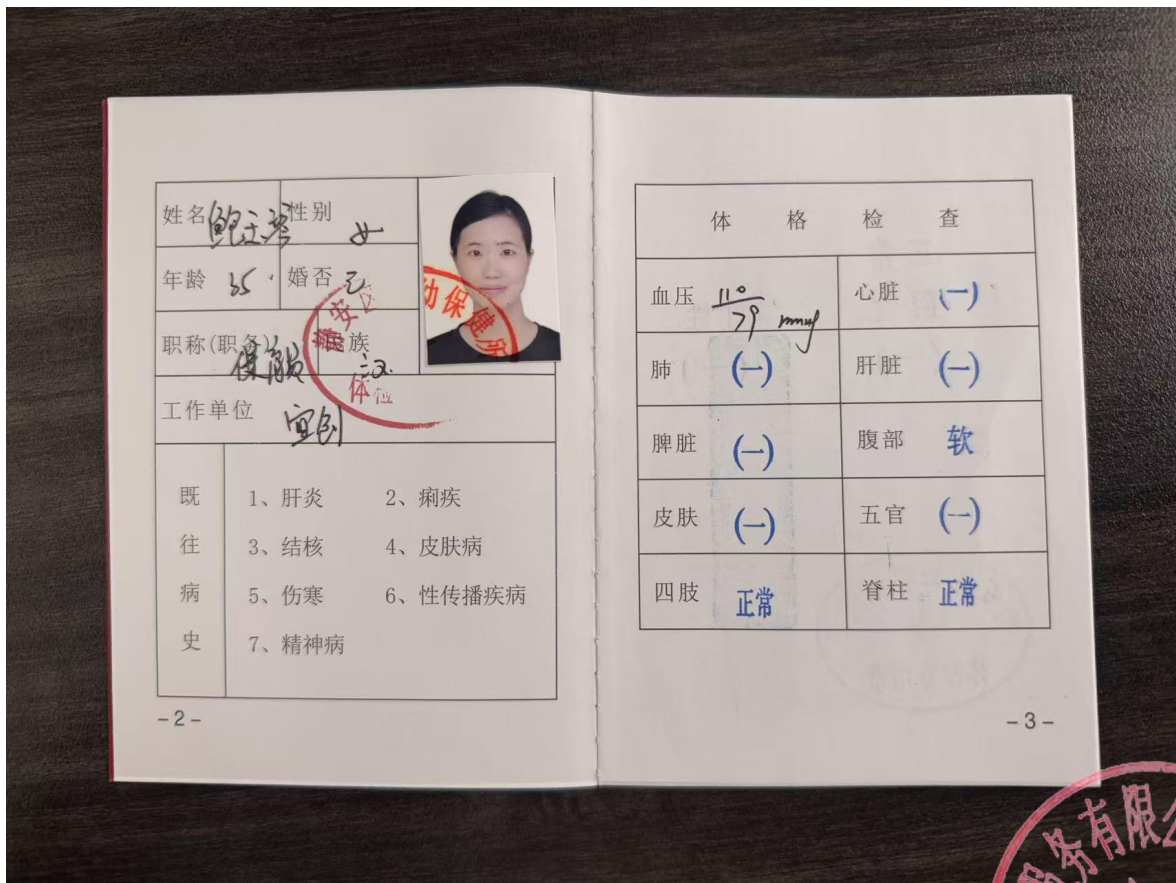 姓名 性别 女
年龄 35 婚否 已
职称(职务) 保育员 民族 汉
工作单位 宜创
既往病史
1、肝炎 2、痢疾
3、结核 4、皮肤病
5、伤寒 6、性传播疾病
7、精神病
-2-
静安区
幼保健所
体检
体格检查
血压 110/79 mmHg 心脏 (一)
肺 (一) 肝脏 (一)
脾脏 (一) 腹部 软
皮肤 (一) 五官 (一)
四肢 正常 脊柱 正常
-3-
服务有限公